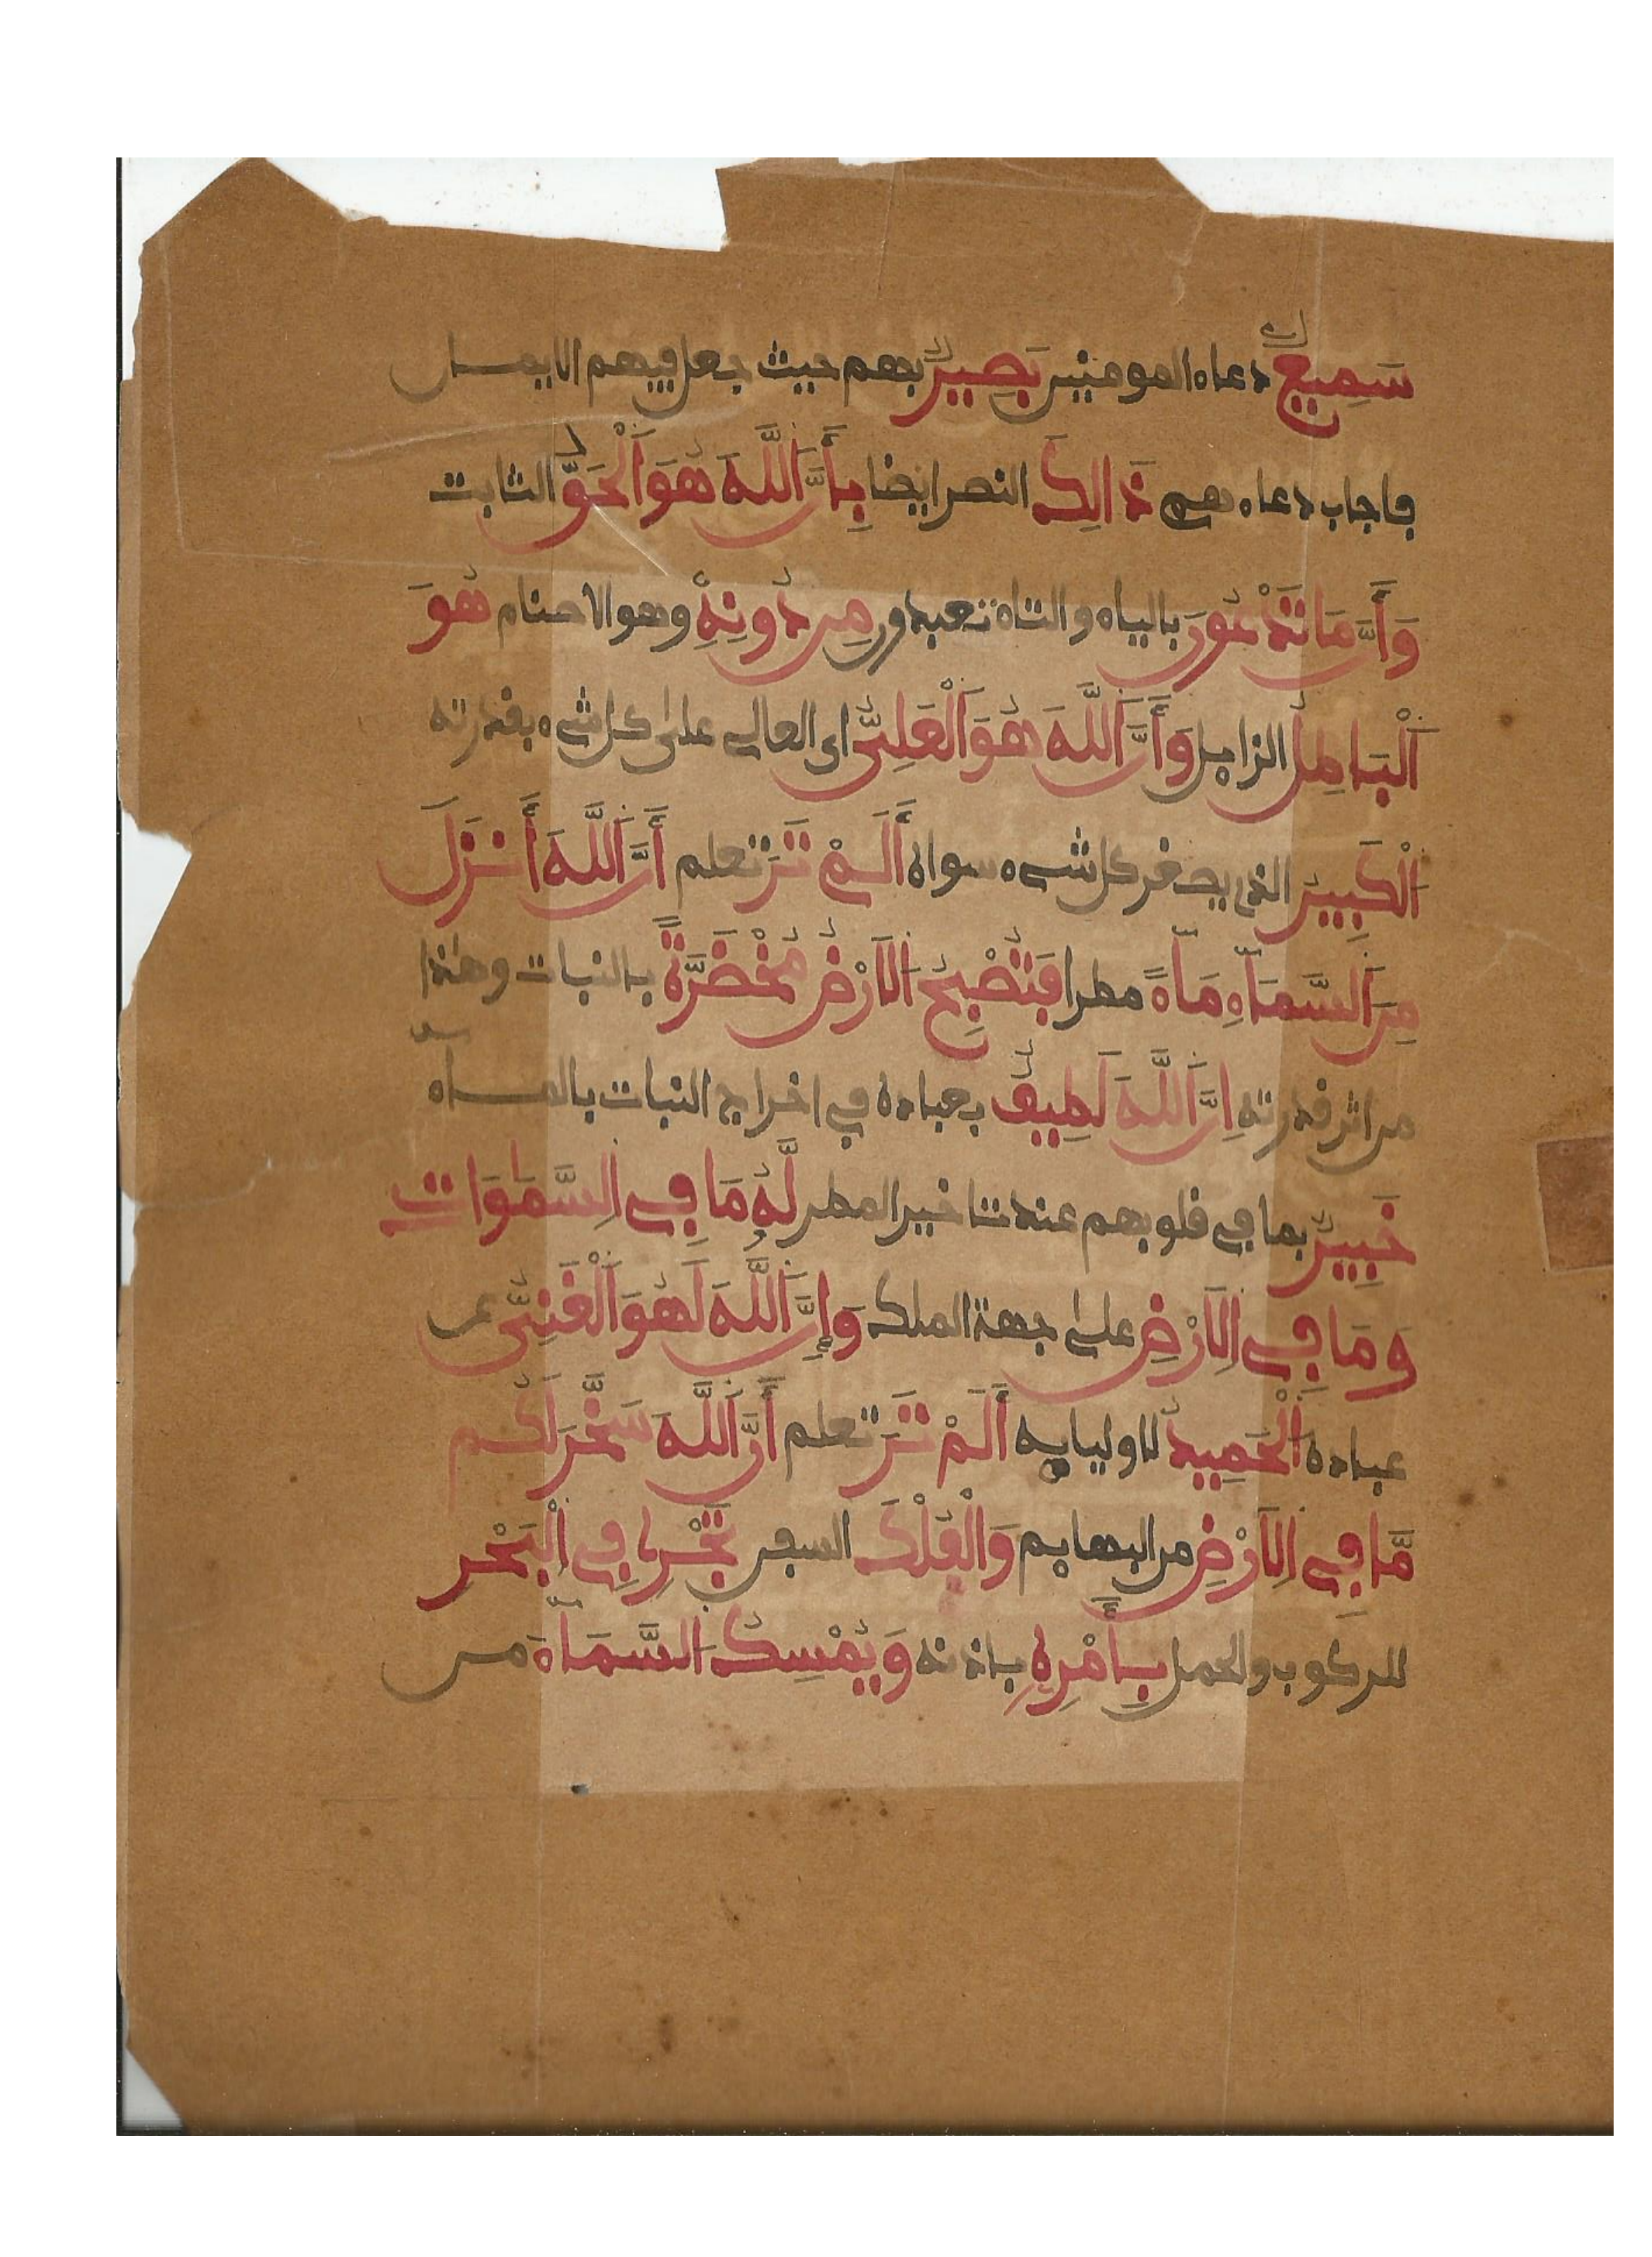 سَمِيعٌ دعاء المومنين بَصِيرٌ بهم حيث جعل فيهم الايمان
فاجاب دعاءهم ذَالِكَ النصر ايضا بِأَنَّ اَللَّهَ هُوَ اَلْحَقُّ الثابت
وَأَنَّ مَا تَدْعُونَ بالياء والتاء تعبدون مِن دُونِهِ وهو الاصنام هُوَ
اَلْبَاطِلُ الزايل وَأَنَّ اَللَّهَ هُوَ اَلْعَلِيُّ اي العالي على كل شيء بقدرته
اَلْكَبِيرُ الذي يصغر كل شيء سواه أَلَمْ تَرَ تعلم أَنَّ اَللَّهَ أَنزَلَ
مِنَ اَلسَّمَآءِ مَآءً مطرا فَتُصْبِحُ اُلَارْضُ مُخْضَرَّةً بالنبات وهذا
من اثر قدرته إِنَّ اَللَّهَ لَطِيفٌ بعباده في اخراج النبات بالمــآء
خَبِيرٌ بما في قلوبهم عند تاخير المطر لَّهُ مَا فِي اِلسَّمَٰوَاتِ
وَمَا فِي اِلَارْضِ على جهة الملك وَإِنَّ اَللَّهَ لَهُوَ اَلْغَنِيُّ عن
عباده اُلْحَمِيدُ لاوليايه أَلَمْ تَرَ تعلم أَنَّ اَللَّهَ سَخَّرَ لَكُم
مَّا فِي اِلَارْضِ من البهايم وَالْفُلْكَ السفن تَجْرِي فِي اِلْبَحْرِ
للركوب والحمل بِأَمْرِهِ باذنه وَيُمْسِكُ اُلسَّمَآءَ من